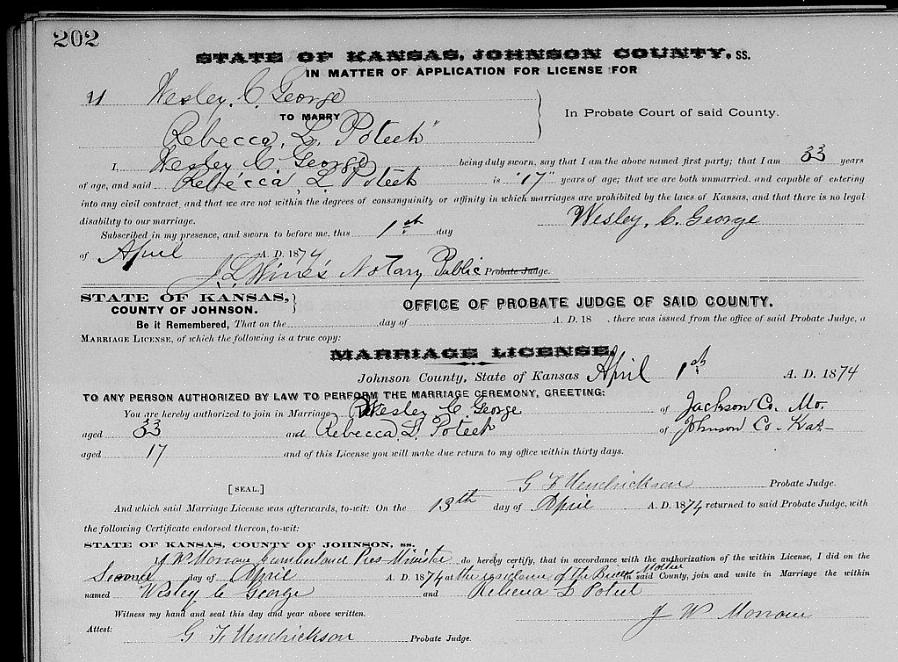 202
STATE OF KANSAS, JOHNSON COUNTY, SS.
IN MATTER OF APPLICATION FOR LICENSE FOR
Wesley. C. George
TO MARRY
In Probate Court of said County.
Rebecca, L. Poteet"
I, Wesley C George being duly sworn, say that I am the above named first party; that I am 33 years
of age, and said Rebecca, L. Poteet is "17" years of age; that we are both unmarried, and capable of entering
into any civil contract, and that we are not within the degrees of consanguinity or affinity in which marriages are prohibited by the laws of Kansas, and that there is no legal
disability to our marriage. Wesley, C. George
Subscribed in my presence, and sworn to before me, this 1st day
of April A. D. 1874
J. L. Wines Notary Public Probate Judge.
STATE OF KANSAS, COUNTY OF JOHNSON. } OFFICE OF PROBATE JUDGE OF SAID COUNTY.
Be it Remembered, That on the day of A. D. 18 , there was issued from the office of said Probate Judge, a
MARRIAGE LICENSE, of which the following is a true copy:
MARRIAGE LICENSE.
Johnson County, State of Kansas April 1st A. D. 1874
TO ANY PERSON AUTHORIZED BY LAW TO PERFORM THE MARRIAGE CEREMONY, GREETING:
You are hereby authorized to join in Marriage Wesley C. George of Jackson Co, Mo.
aged 33 and Rebecca L. Poteet of Johnson Co- Kas-
aged 17 and of this License you will make due return to my office within thirty days.
G F Hendrickson Probate Judge.
[SEAL.]
And which said Marriage License was afterwards, to-wit: On the 13th day of April A. D. 1874 returned to said Probate Judge, with
the following Certificate endorsed thereon, to-wit:
STATE OF KANSAS, COUNTY OF JOHNSON, ss.
J W Morrow Cumberland Pres Minister do hereby certify, that in accordance with the authorization of the within License, I did on the
Second day of April A. D. 1874 at the residence of the Brides Mother in said County, join and unite in Marriage the within
named Wesley C George and Rebecca L Poteet
Witness my hand and seal this day and year above written. J W Morrow
Attest: G F Hendrickson Probate Judge.